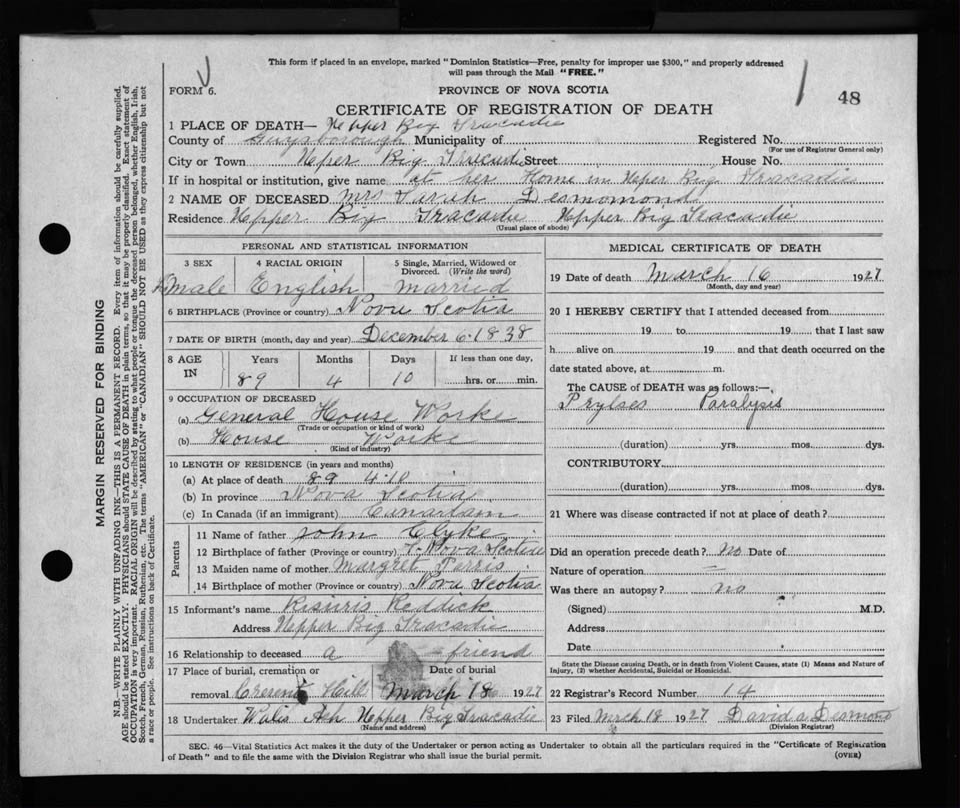 This form if placed in an envelope, marked "Dominion Statistics—Free, penalty for improper use $300," and properly addressed
will pass through the Mail "FREE."
FORM 6.
PROVINCE OF NOVA SCOTIA
48
CERTIFICATE OF REGISTRATION OF DEATH
1 PLACE OF DEATH— Hepper Big Tracadie
County of Guysborough Municipality of Registered No.
(For use of Registrar General only)
City or Town Heper Big Tracadie Street House No.
If in hospital or institution, give name at her Home in Heper Big Tracadie
2 NAME OF DECEASED Mrs Sarah Desmomond
Residence Hepper Big Tracadie Hepper Big Tracadie
(Usual place of abode)
PERSONAL AND STATISTICAL INFORMATION
3 SEX 4 RACIAL ORIGIN 5 Single, Married, Widowed or Divorced. (Write the word)
male English married
6 BIRTHPLACE (Province or country) Nova Scotia
7 DATE OF BIRTH (month, day and year) December 6. 1838
8 AGE IN Years Months Days If less than one day,
89 4 10 hrs. or min.
9 OCCUPATION OF DECEASED
(a) General House Worke
(Trade or occupation or kind of work)
(b) House Worke
(Kind of industry)
10 LENGTH OF RESIDENCE (in years and months)
(a) At place of death 89 4 10
(b) In province Nova Scotia
(c) In Canada (if an immigrant)
Parents
11 Name of father John Clyke
12 Birthplace of father (Province or country) Nova Scotia
13 Maiden name of mother Margret
14 Birthplace of mother (Province or country) Nova Scotia
15 Informant's name Reddick
Address Hepper Big Tracadie
16 Relationship to deceased a friend
17 Place of burial, cremation or Date of burial
removal Hill March 18 1927
18 Undertaker Ash Hepper Big Tracadie
(Name and address)
MEDICAL CERTIFICATE OF DEATH
19 Date of death March 16 1927
(Month, day and year)
20 I HEREBY CERTIFY that I attended deceased from
19 to 19 that I last saw
h alive on 19 and that death occurred on the
date stated above, at m.
The CAUSE of DEATH was as follows:—
Prylses Paralysis
(duration) yrs. mos. dys.
CONTRIBUTORY
(duration) yrs. mos. dys.
21 Where was disease contracted if not at place of death?
Did an operation precede death? no Date of
Nature of operation —
Was there an autopsy? no
(Signed) M.D.
Address
Date
State the Disease causing Death, or in death from Violent Causes, state (1) Means and Nature of
Injury, (2) whether Accidental, Suicidal or Homicidal.
22 Registrar's Record Number 14
23 Filed March 18 1927 David a Desmond
(Division Registrar)
SEC. 46—Vital Statistics Act makes it the duty of the Undertaker or person acting as Undertaker to obtain all the particulars required in the "Certificate of Registration
of Death" and to file the same with the Division Registrar who shall issue the burial permit.
(OVER)
MARGIN RESERVED FOR BINDING
N.B.—WRITE PLAINLY WITH UNFADING INK—THIS IS A PERMANENT RECORD. Every item of information should be carefully supplied.
AGE should be stated EXACTLY. PHYSICIANS should STATE CAUSE OF DEATH in plain terms, so that it may be properly classified. Exact statement of
OCCUPATION is very important. RACIAL ORIGIN will be described by stating to what people or tongue the deceased person belonged, whether English, Irish,
Scotch, French, German, Russian, Ruthenian, etc. The terms "AMERICAN" or "CANADIAN" SHOULD NOT BE USED as they express citizenship but not
a race or people. See instructions on back of Certificate.